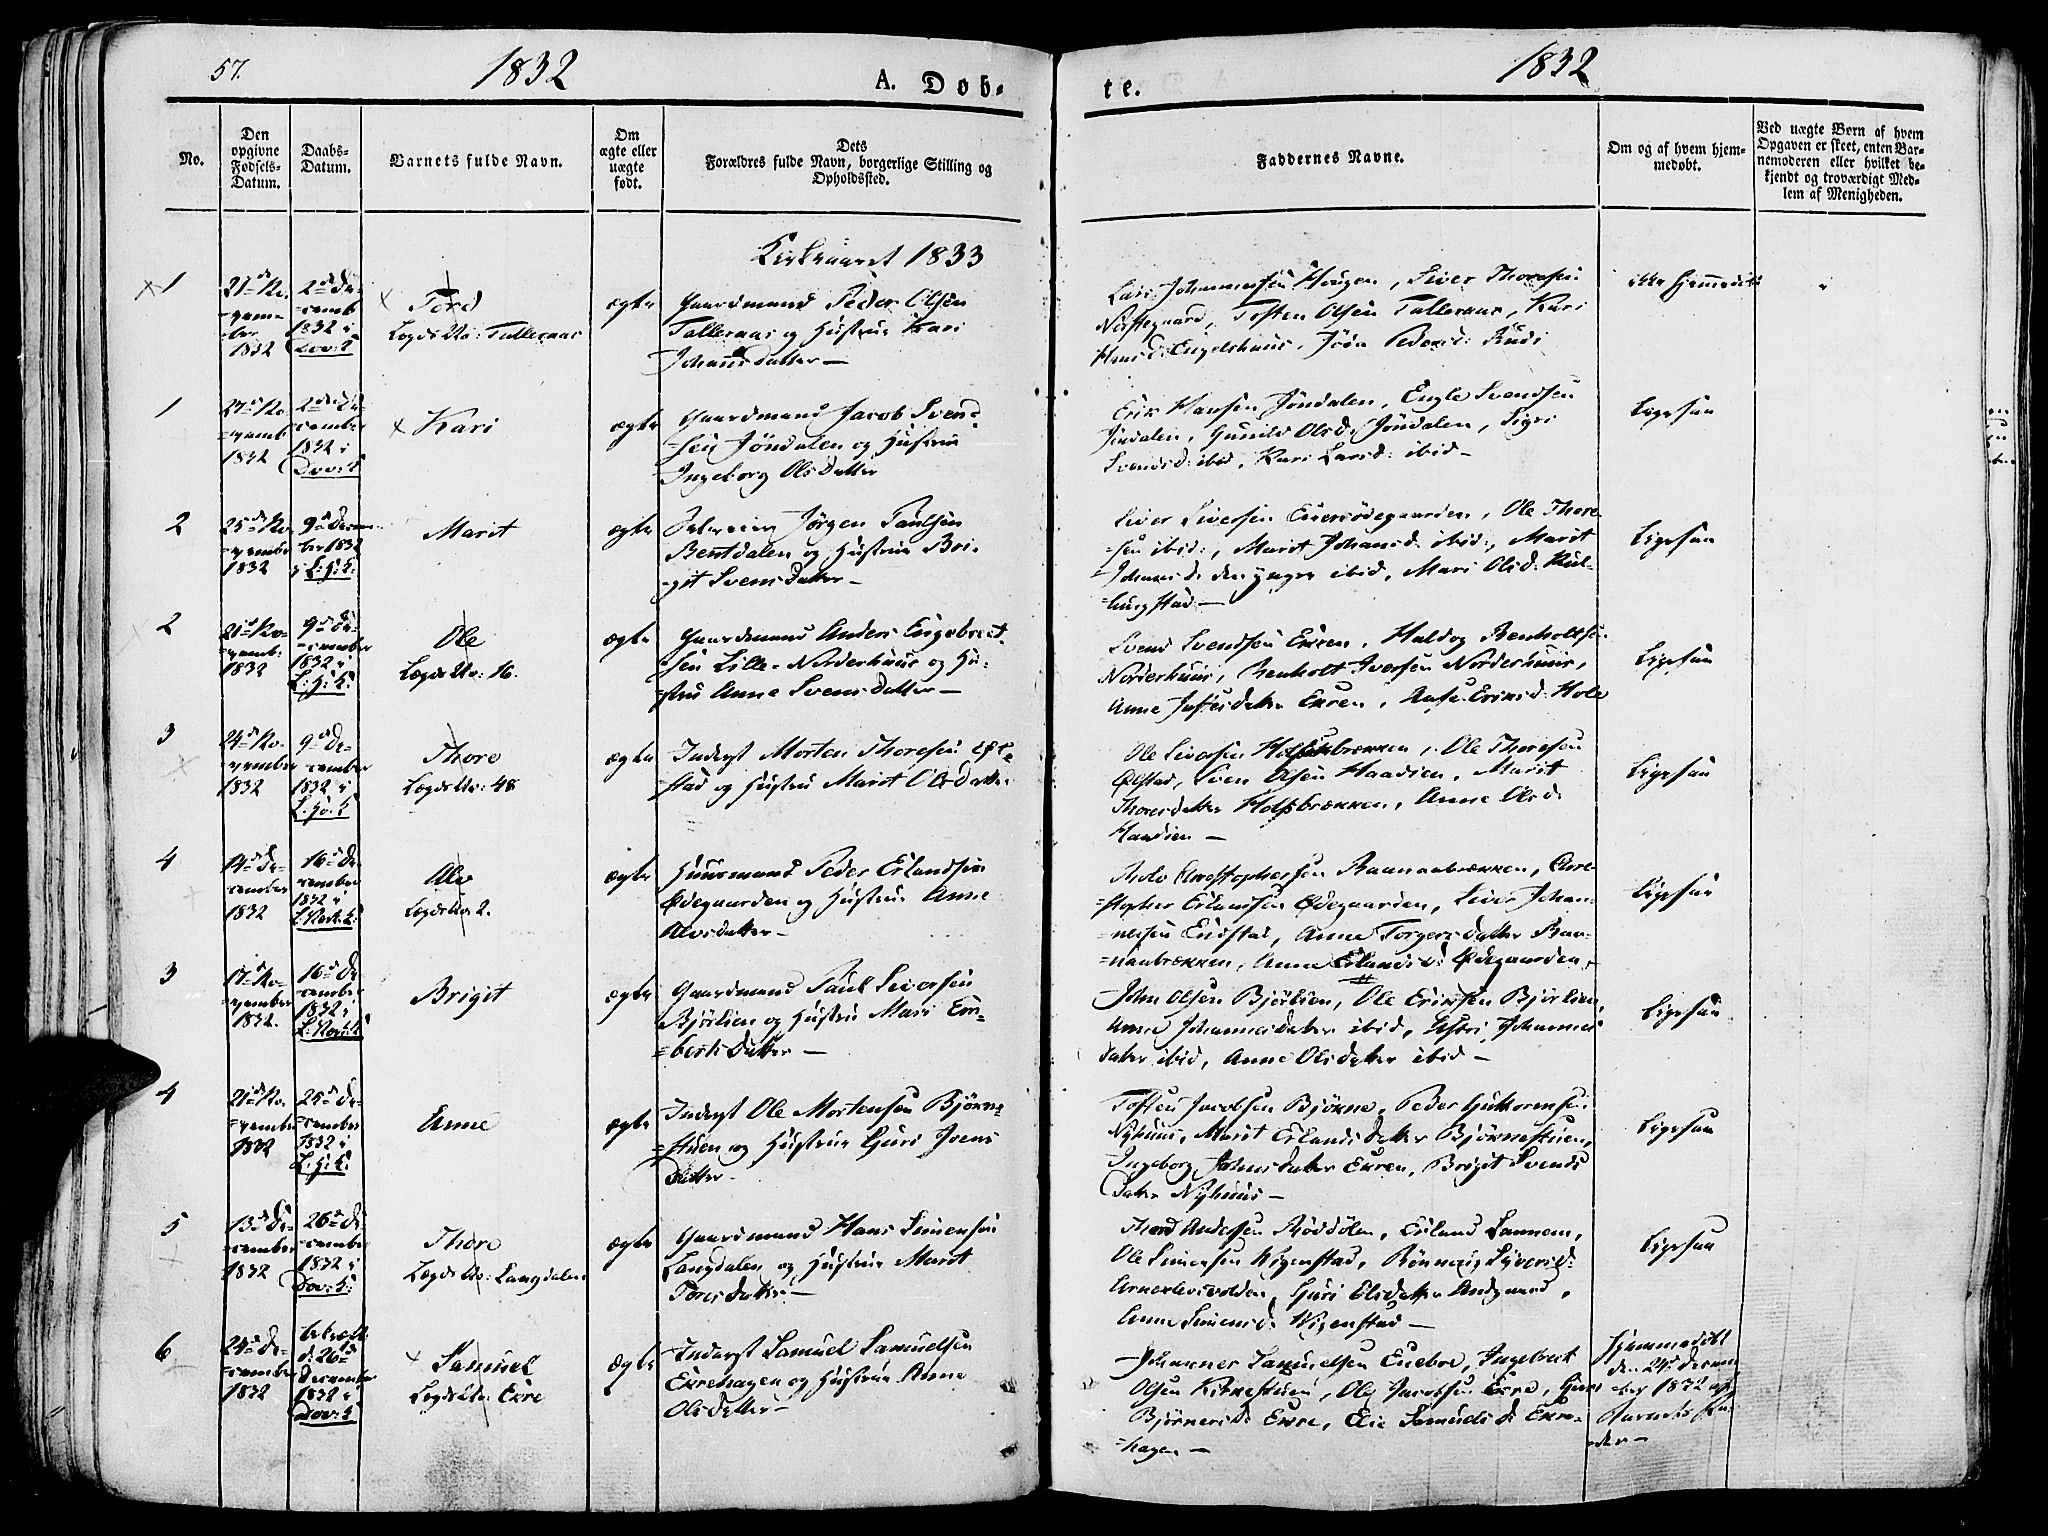 57.
1832
A. Døb-
te.
1832
No.
Den opgivne Fødsels-Datum.
Daabs-Datum.
Barnets fulde Navn.
Om ægte eller uægte født.
Dets Forældres fulde Navn, borgerlige Stilling og Opholdssted.
Faddernes Navne.
Om og af hvem hjemmedøbt.
Ved uægte Børn af hvem Opgaven er skeet, enten Barnemoderen eller hvilket bekjendt og troværdigt Medlem af Menigheden.
Kirkeaaret 1833
1
21de No-
vem-
ber
1832
2den De-
cemb
1832 i
Dov: K
Tord
Lægds No: Talleraas
ægte
Gaardmand Peder Olsen
Talleraas og Hustrue Kari
Johannsdatter —
Lars Johannessen Haugen, Siver Thoresen
Norstegaard, Tosten Olsen Talleraas, Kari
Hansd: Engelshuus, Jöda Pedersd: Rudi
ikke Hjemmedøbt
1
27de No
vemb
1832
2den De-
cember
1832 i
Dov: K
Kari
ægte
Gaardmand Jacob Sven-
sen Jöndalen og Hustrue
Ingeborg Olsdatter
Erik Hansen Jöndalen, Engle Svendsen
Jöndalen, Gunild Olsd: Jöndalen, Sigri
Svendsd: ibid, Kari Larsd: ibid —
Ligesaa
2
25de No
vember
1832
9de Decem-
ber 1832
i L: H: K:
Marit
ægte
Jörgen Paulsen
Bentdalen og Hustrue Bri-
git Svensdatter —
Siver Siversen Ekresödegaarden, Ole Thore-
sen ibid:, Marit Johansd: ibid:, Marit
Johansd: den yngre ibid, Mari Olsd:
Ligesaa
2
21de No-
vemb:
1832
9de De-
cember
1832 i
L: H: K:
Ole
Lægds No: 16.
ægte
Gaardmand Anders Engebret-
sen Lille-Norderhuus og Hu-
stru Anne Svensdatter —
Svend Svendsen Ekren, Haldog Renholtsen
Norderhuus, Renholt Iversen Norderhuus,
Anne Jostesdatter Ekren, Eriksd: Hole
Ligesaa
3
24de No-
vember
1832
9de De-
cember
1832 i
L: H: K
Thore
Lægds No: 48
ægte
Inderst Morten Thoresen Öl-
stad og Hustru Marit Olsdatter
Ole Siversen Holsbrækken, Ole Thoresen
Ölstad, Sven Olsen Haadien, Marit
Thoresdatter Holsbrækken, Anne Olsd:
Haadien —
Ligesaa
4
14de De-
cember
1832
16de De-
cember
1832 i
L: Kork: K
Alv
Lægds No 2.
ægte
Huusmand Peder Erlandsen
Ödegaarden og Hustrue Anne
Alvsdatter —
Christophersen Raanaabrækken, Chri-
stopher Erlandsen Ödegaarden, Siver Johan-
nessen Endstad, Anne Torgersdatter Raa-
naabrækken, Anne Erlandsd: Ödegaarden,
Ligesaa
3
17de No-
vember
1832.
16de De-
cember
1832 i
L: Kork: K
Brigit
ægte
Gaardmand Paul Siversen
Björlien og Hustru Mari Em-
bertsdatter —
John Olsen Björlien, Ole Eriksen Björlien,
Anne Johannesdatter ibid, Johannes
datter ibid, Anne Olsdatter ibid —
Ligesaa
4
21de No-
vember
1832
25de De-
cember
1832 i
L: H: K:
Anne
ægte
Inderst Ole Mortensen Björne-
stuen og Hustrue Guri Ivers
datter —
Tosten Jacobsen Björne, Peder Guttormsen
Nyhuus, Marit Erlandsdatter Björnestuen,
Ingeborg Johnsdatter Ekren, Brigit Svends
datter Nyhuus —
Ligesaa
5
13de De-
cember
1832
26de De-
cember
1832 i
Dov: K:
Thore
Lægds No: Langdalen
ægte
Gaardmand Hans Simensen
Langdalen og Hustrue Marit
Toresdatter —
Thord Andersen Röddölen, Erland Lannem,
Ole Simensen Vigenstad, Rönnoug Syversd:
Guri Olsdatter Andgaard,
Anne Simensd: Vigenstad —
Ligesaa
6
24de De-
cember
1832
bekræft:
d: 26de
December
1832 i
Dov: K
Samuel
Lægds No: Ekre
ægte
Inderst Samuel Samuelsen
Ekrehagen og Hustrue Anne
Olsdatter —
Johannes Samuelsen Eneboe, Ingebret
Olsen Kirkestuen, Ole Jacobsen Ekre, Guri
Björnersd: Ekre, Elie Samuelsd: Ekre-
hagen —
Hjemmedøbt
den 24de Decem-
ber 1832 af
Barnets Fa-
der —